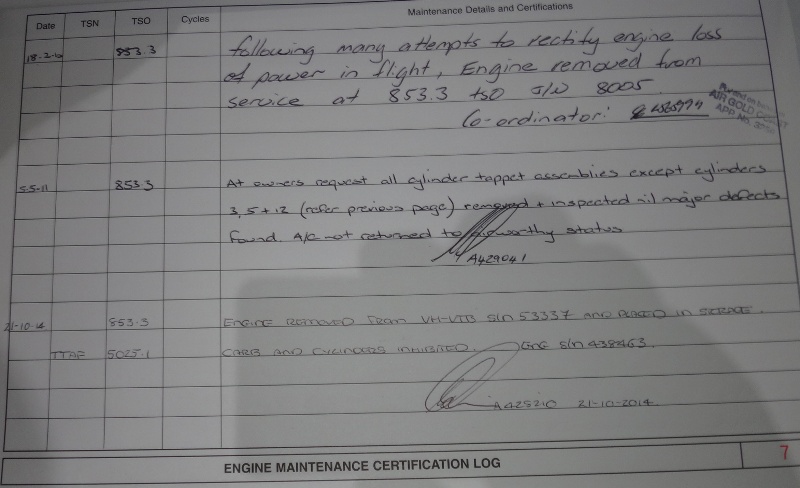 Maintenance Details and Certifications
Date TSN TSO Cycles
18-2-10 853.3 following many attempts to rectify engine loss
of power in flight, Engine removed from
service at 853.3 tso J/W 8005
Co-ordinator:
AIR GOLD
APP No.
5-5-11 853.3 At owners request all cylinder tappet assemblies except cylinders
3, 5 + 12 (refer previous page) removed + inspected nil major defects
found. A/C not returned to airworthy status
A429041
21-10-14 853.3 ENGINE REMOVED FROM VH-VTB S/N 53337 AND PLACED IN STORAGE.
TTAF 5025.1 CARB AND CYLINDERS INHIBITED. ENG S/N 438463.
A425210 21-10-2014.
ENGINE MAINTENANCE CERTIFICATION LOG 7